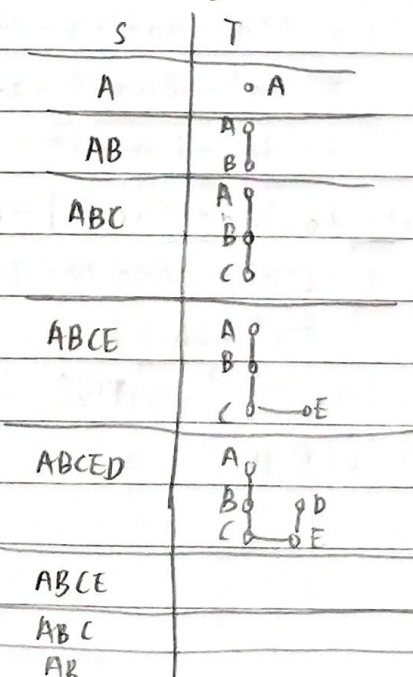 S T
A A
AB A
B
ABC A
B
C
ABCE A
B
C E
ABCED A
B D
C E
ABCE
ABC
AB